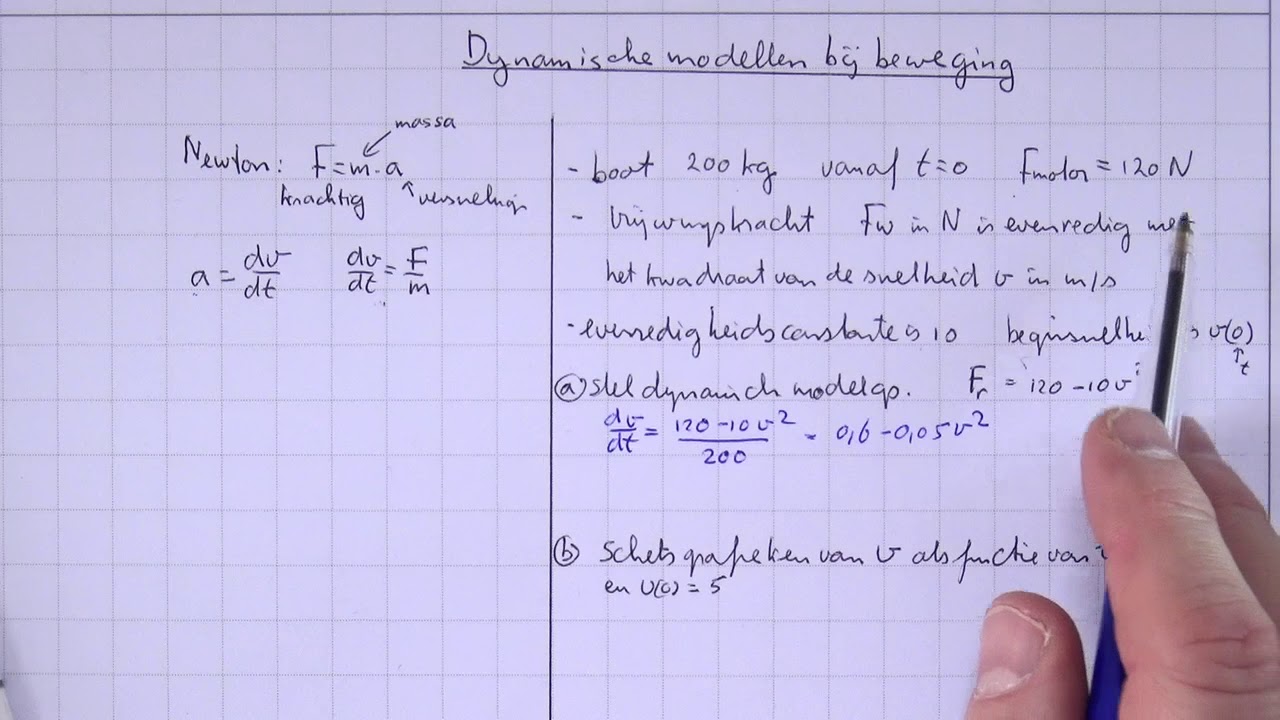 Dynamische modellen bij beweging
massa
Newton: F = m · a
krachtig versnelling
a = dv/dt dv/dt = F/m
- boot 200 kg vanaf t=0 Fmotor = 120 N
- wrijvingskracht Fw in N is evenredig met
het kwadraat van de snelheid v in m/s
- evenredigheidsconstante is 10 v(0)
t
(a) stel dynamisch model op. Fr = 120 - 10v
dv/dt = (120 - 10v²)/200 = 0,6 - 0,05v²
(b) Schets grafieken van v als functie van
en v(0) = 5